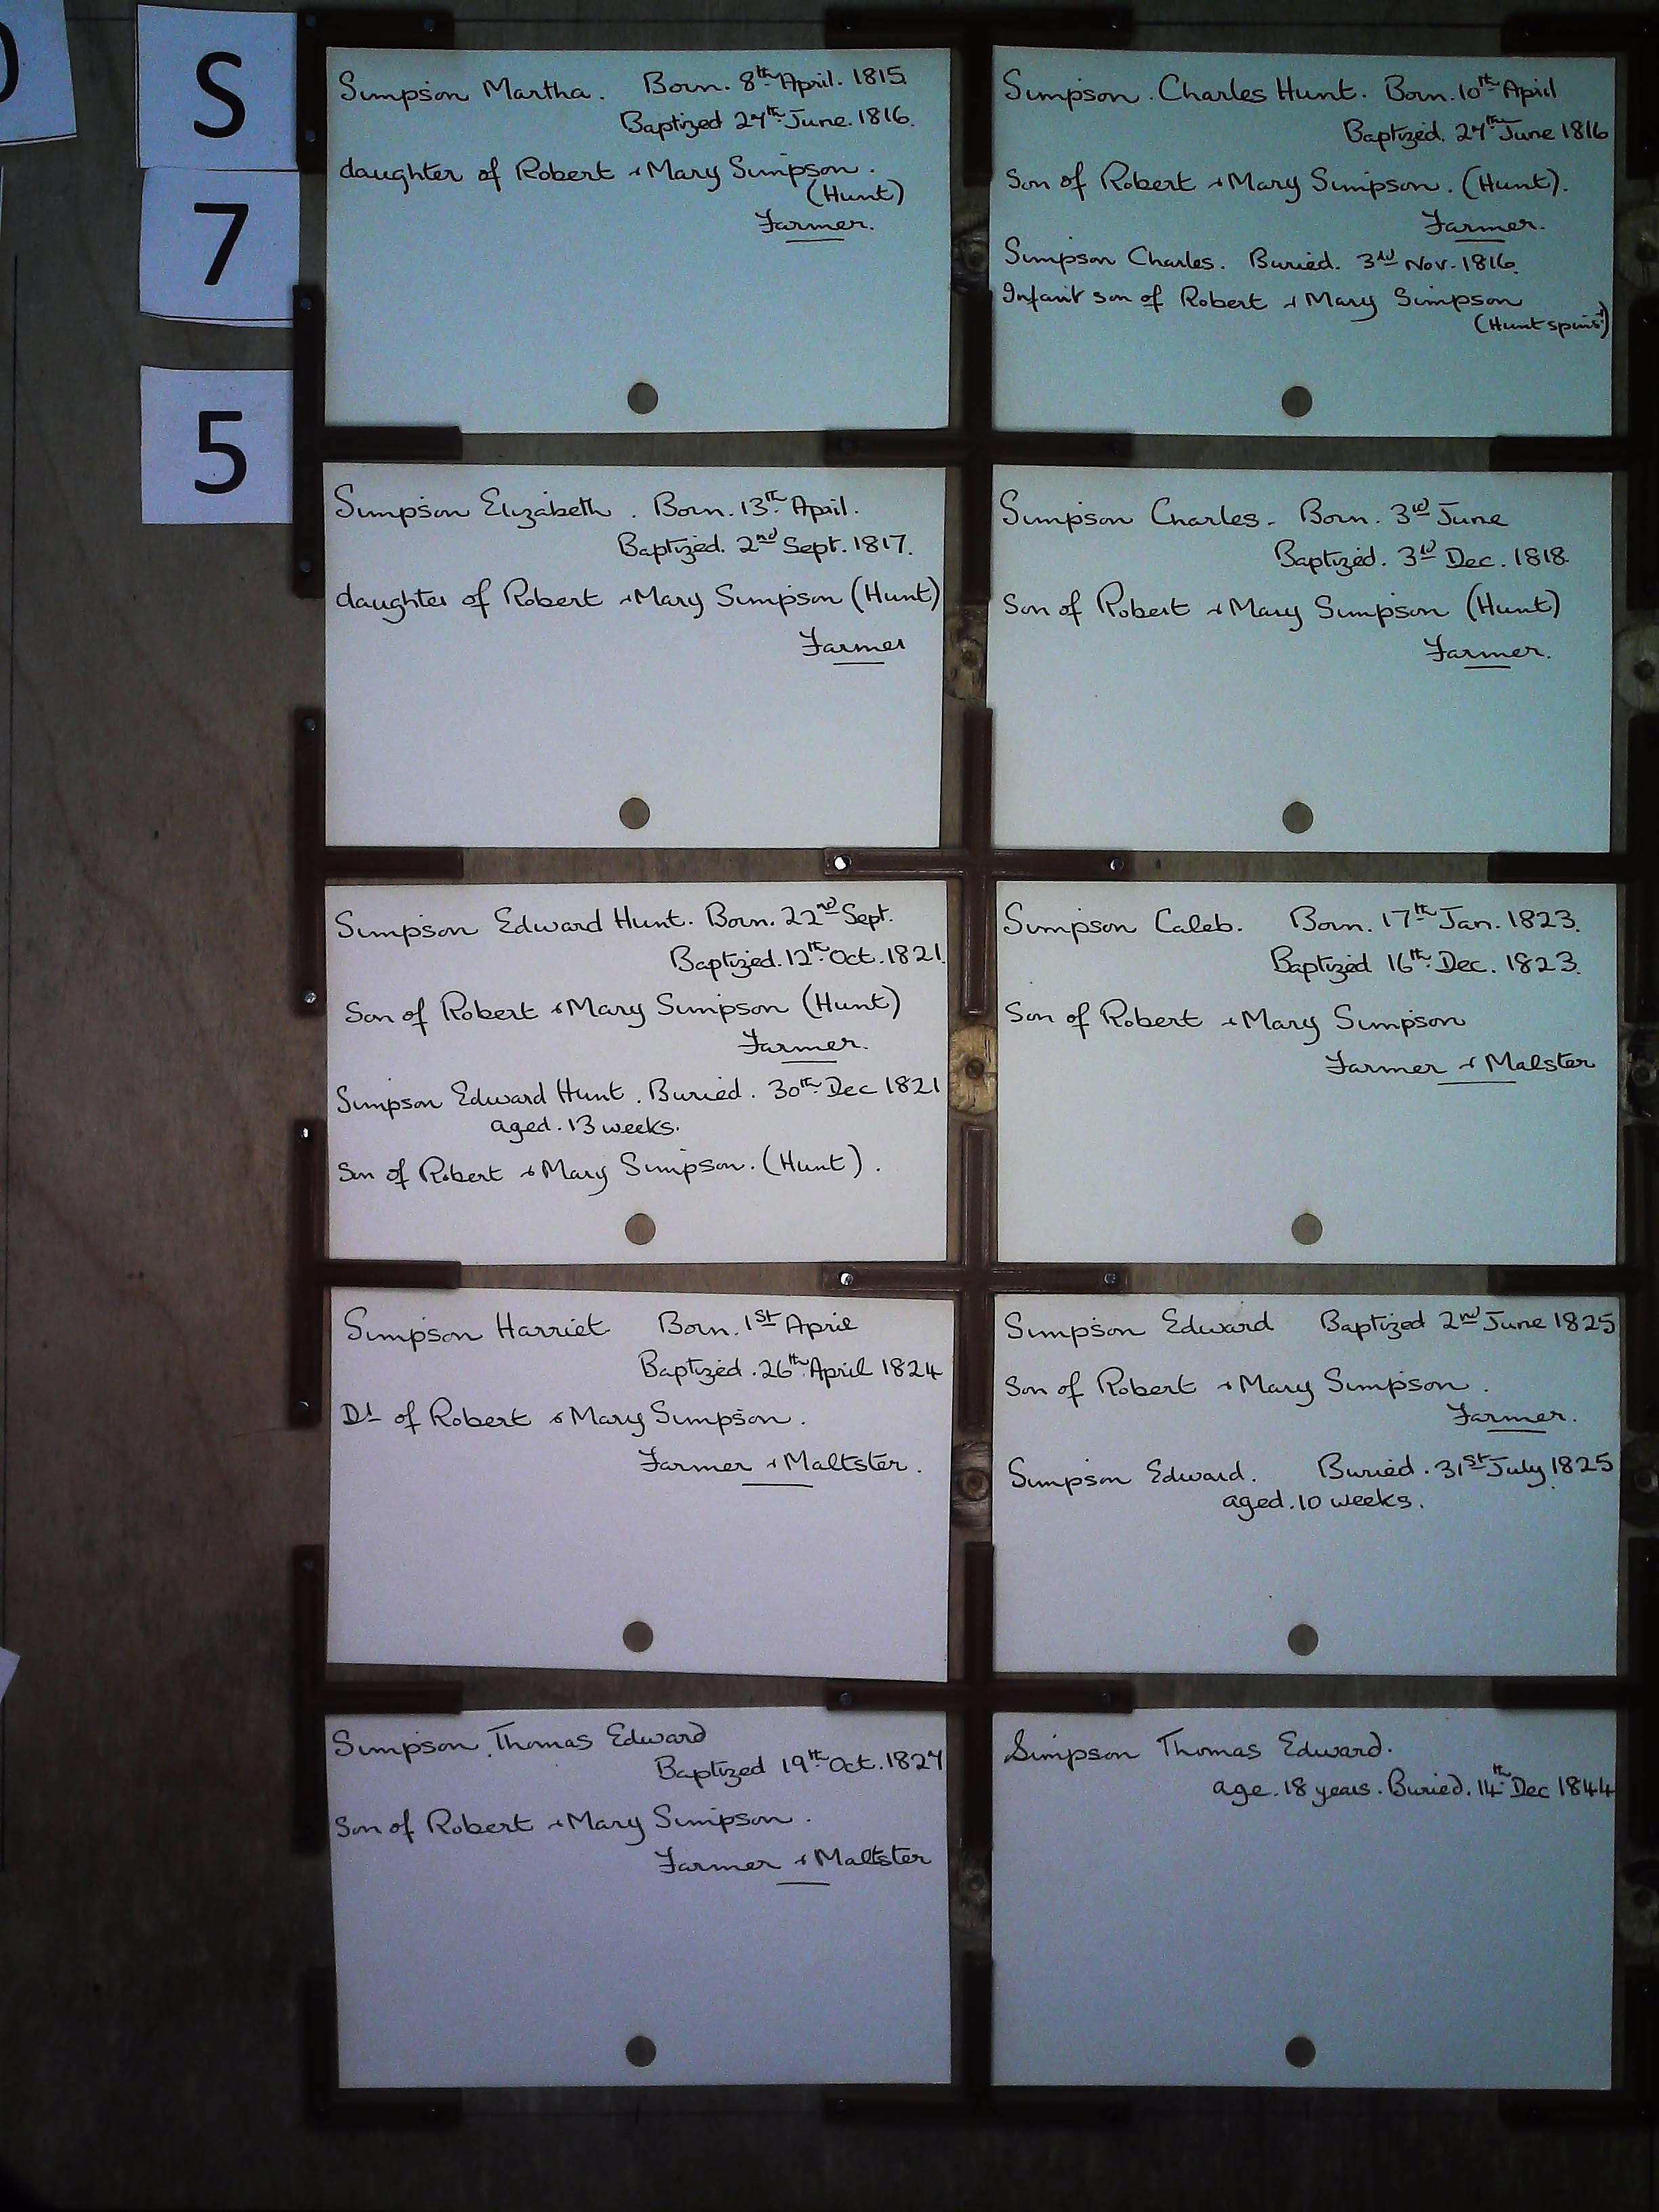 S
7
5
Simpson Martha. Born. 8th April. 1815.
Baptized 27th June. 1816.
daughter of Robert & Mary Simpson.
(Hunt)
Farmer.
Simpson. Charles Hunt. Born. 10th April
Baptized. 27th June 1816
Son of Robert & Mary Simpson. (Hunt).
Farmer.
Simpson Charles. Buried. 3rd Nov. 1816.
Infant son of Robert & Mary Simpson
(Hunt spinst)
Simpson Elizabeth. Born. 13th April.
Baptized. 2nd Sept. 1817.
daughter of Robert & Mary Simpson (Hunt)
Farmer
Simpson Charles. Born. 3rd June
Baptized. 3rd Dec. 1818.
Son of Robert & Mary Simpson (Hunt)
Farmer.
Simpson Edward Hunt. Born. 22nd Sept.
Baptized. 12th Oct. 1821.
Son of Robert & Mary Simpson (Hunt)
Farmer.
Simpson Edward Hunt. Buried. 30th Dec 1821
aged. 13 weeks.
Son of Robert & Mary Simpson. (Hunt).
Simpson Caleb. Born. 17th Jan. 1823.
Baptized 16th Dec. 1823.
Son of Robert & Mary Simpson
Farmer & Malster
Simpson Harriet Born. 1st April
Baptized. 26th April 1824
Dt of Robert & Mary Simpson.
Farmer & Maltster.
Simpson Edward Baptized 2nd June 1825
Son of Robert & Mary Simpson.
Farmer.
Simpson Edward. Buried. 31st July 1825
aged. 10 weeks.
Simpson. Thomas Edward
Baptized 19th Oct. 1827
Son of Robert & Mary Simpson.
Farmer & Maltster
Simpson Thomas Edward.
age. 18 years. Buried. 14th Dec 1844